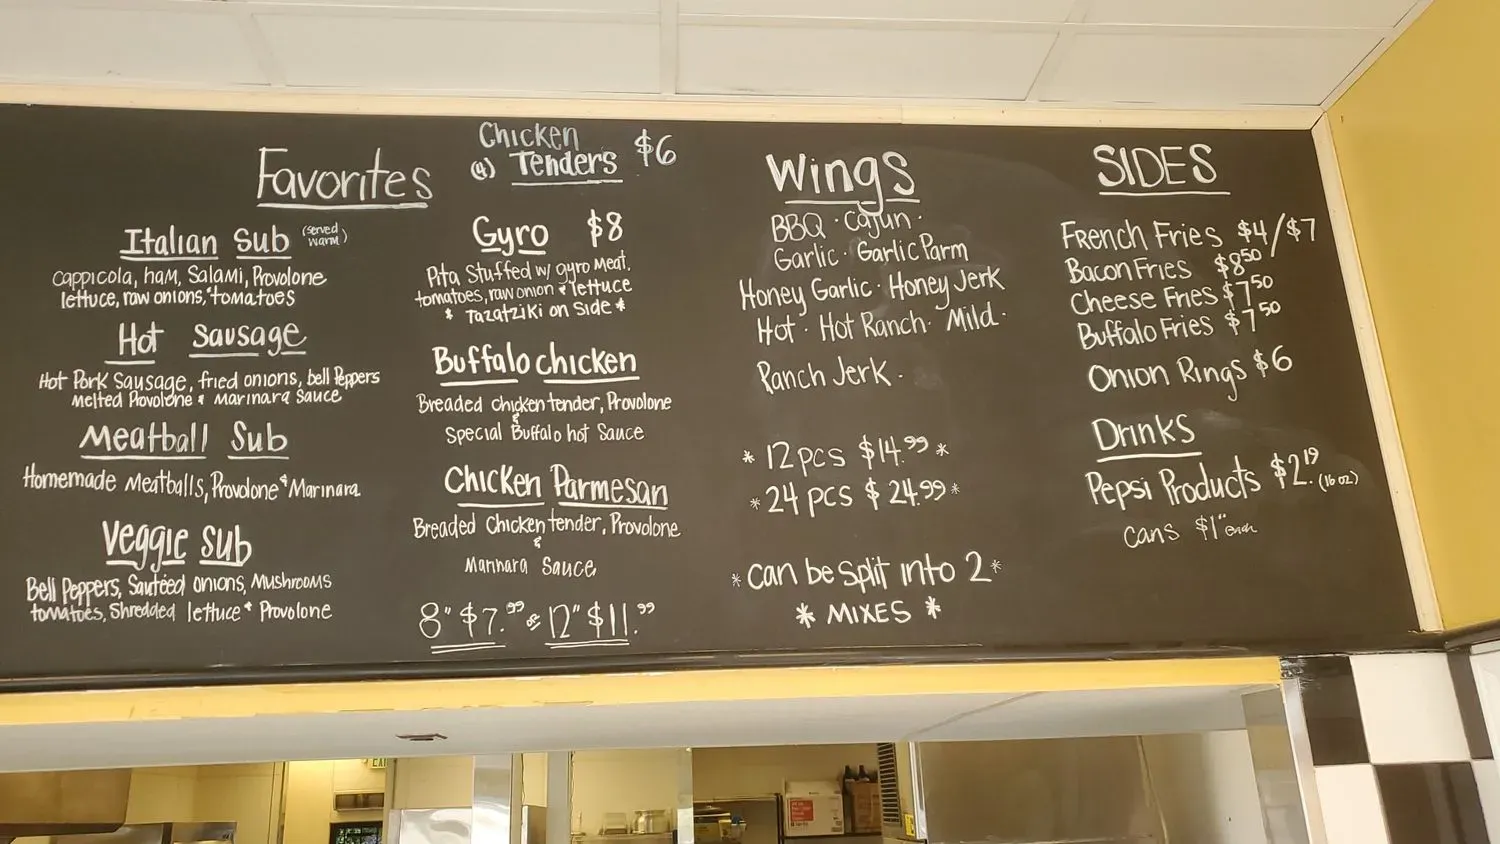 Favorites
Italian Sub (served warm)
cappicola, ham, Salami, Provolone
lettuce, raw onions, & tomatoes
Hot Sausage
Hot Pork Sausage, fried onions, bell Peppers
Melted Provolone & Marinara Sauce
Meatball Sub
Homemade Meatballs, Provolone & Marinara
Veggie Sub
Bell Peppers, Sauteed onions, Mushrooms
tomatoes, Shredded lettuce & Provolone
Chicken
(4) Tenders $6
Gyro $8
Pita Stuffed w/ gyro Meat,
tomatoes, raw onion & lettuce
* Tazatziki on Side *
Buffalo chicken
Breaded chicken tender, Provolone
&
Special Buffalo hot Sauce
Chicken Parmesan
Breaded Chicken tender, Provolone
&
Marinara Sauce
8" $7.99 or 12" $11.99
Wings
BBQ · Cajun ·
Garlic · Garlic Parm
Honey Garlic · Honey Jerk
Hot · Hot Ranch · Mild ·
Ranch Jerk ·
* 12 pcs $14.99 *
* 24 pcs $24.99 *
* can be split into 2 *
* MIXES *
SIDES
French Fries $4/$7
Bacon Fries $8.50
Cheese Fries $7.50
Buffalo Fries $7.50
Onion Rings $6
Drinks
Pepsi Products $2.19 (16 oz)
cans $1 each